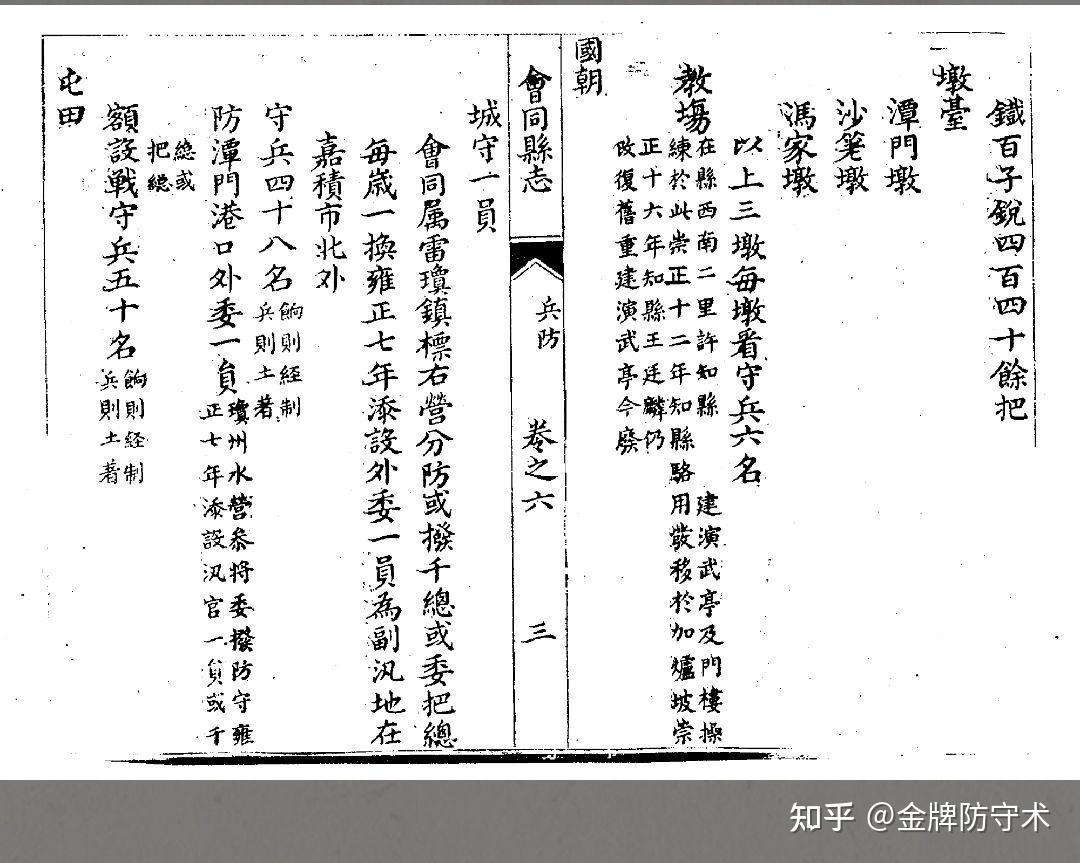 鐵百子銃四百四十餘把
墩臺
潭門墩
沙荖墩
馮家墩
以上三墩每墩看守兵六名
教塲
在縣西南二里許知縣 建演武亭及門樓操
練於此崇正十二年知縣駱用敬移於加爐坡崇
正十六年知縣王廷麟仍
改復舊重建演武亭今廢
國朝
會同縣志 兵防 卷之六 三
城守一員
會同属雷瓊鎮標右營分防或撥千總或委把總
每歲一換雍正七年添設外委一員為副汛地在
嘉積市北外
守兵四十八名
餉則經制
兵則土著
防潭門港口外委一員
瓊州水營叅將委撥防守雍
正七年添設汛官一員或千
總或
把總
額設戰守兵五十名
餉則經制
兵則土著
屯田
知乎 @金牌防守术